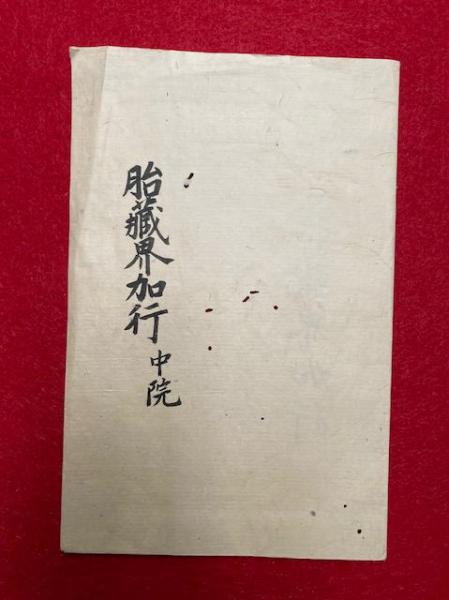 胎藏界加行 中院